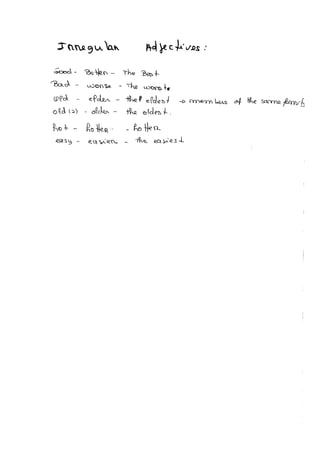 Irregular Adjectives:
Good - Better - The Best
Bad - worse - The worste
old - elder - the eldest → members of the same family
old (2) - older - the oldest.
hot - hotter - hotter.
easy - easier - The easiest